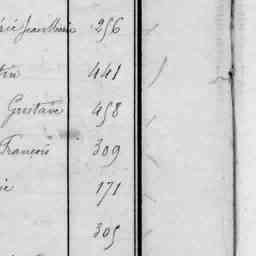 Jean Marie 256
441
Gustave 458
François 309
171
305